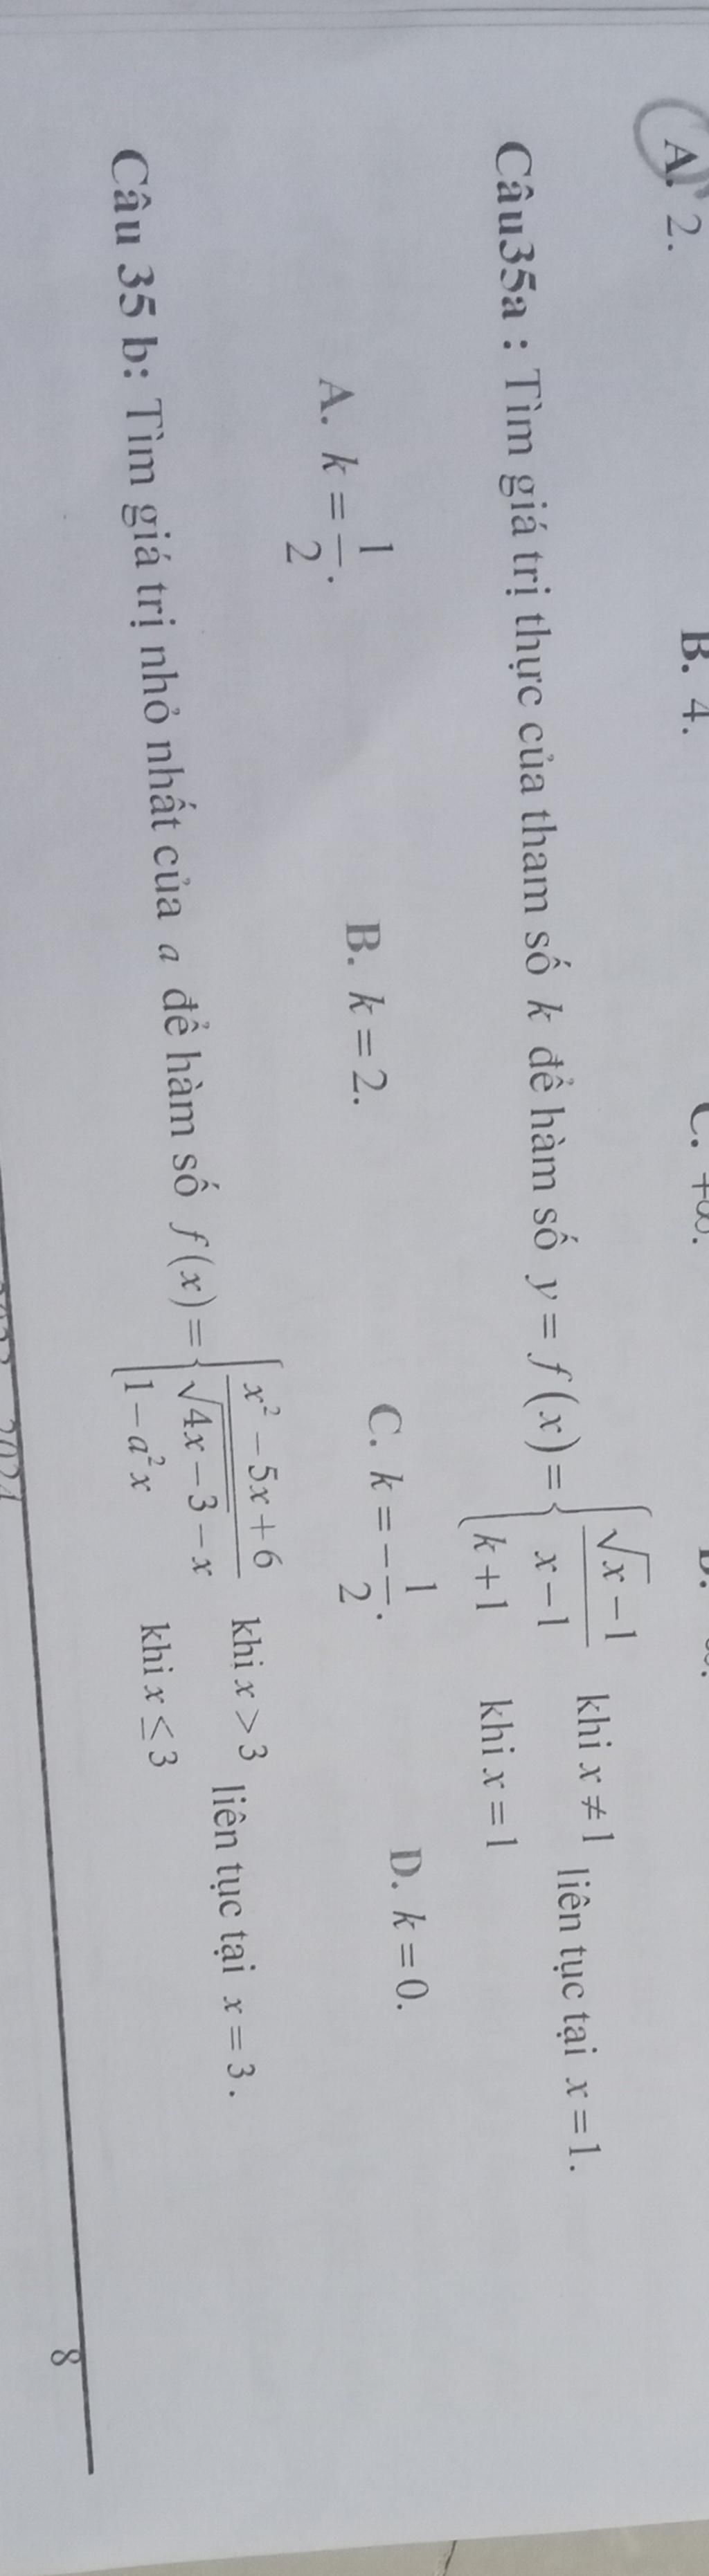 A. 2. B. 4. C. +∞.
Câu35a : Tìm giá trị thực của tham số k để hàm số y = f(x) = { (√x − 1)/(x − 1) khi x ≠ 1; k + 1 khi x = 1 liên tục tại x = 1.
A. k = 1/2. B. k = 2. C. k = −1/2. D. k = 0.
Câu 35 b: Tìm giá trị nhỏ nhất của a để hàm số f(x) = { (x² − 5x + 6)/(√(4x − 3) − x) khi x > 3; 1 − a²x khi x ≤ 3 liên tục tại x = 3.
8
2024